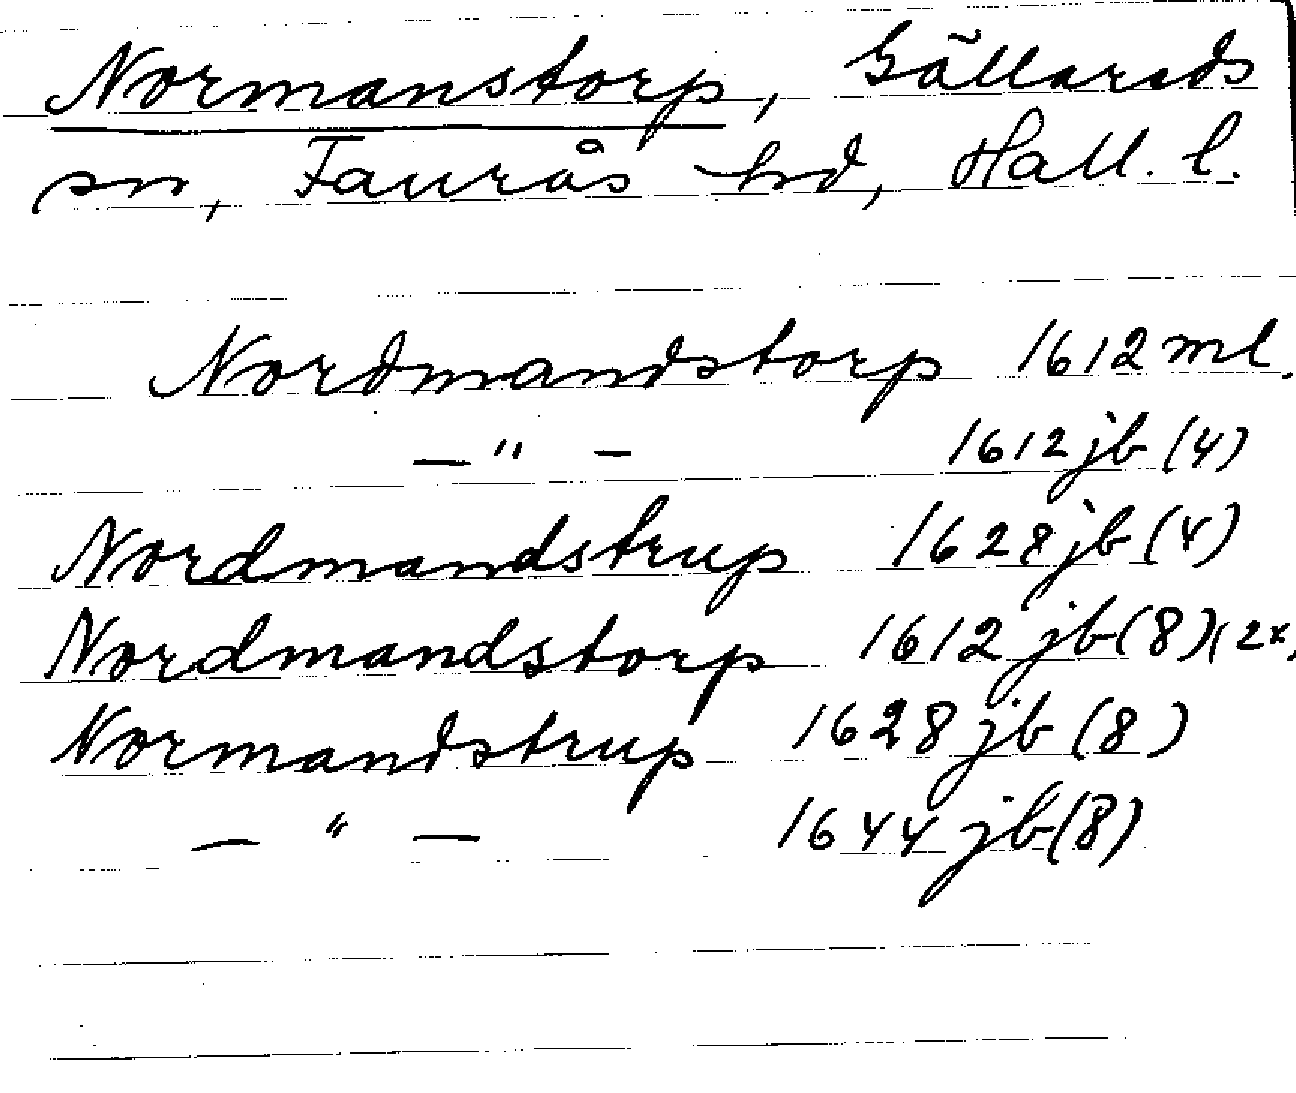 Normanstorp, Gällareds
sn, Faurås hd, Hall. l.
Nordmandstorp 1612 ml.
—"— 1612 jb (4)
Nordmandstrup 1628 jb (4)
Nordmandstorp 1612 jb (8) (2x)
Normandstrup 1628 jb (8)
—"— 1644 jb (8)